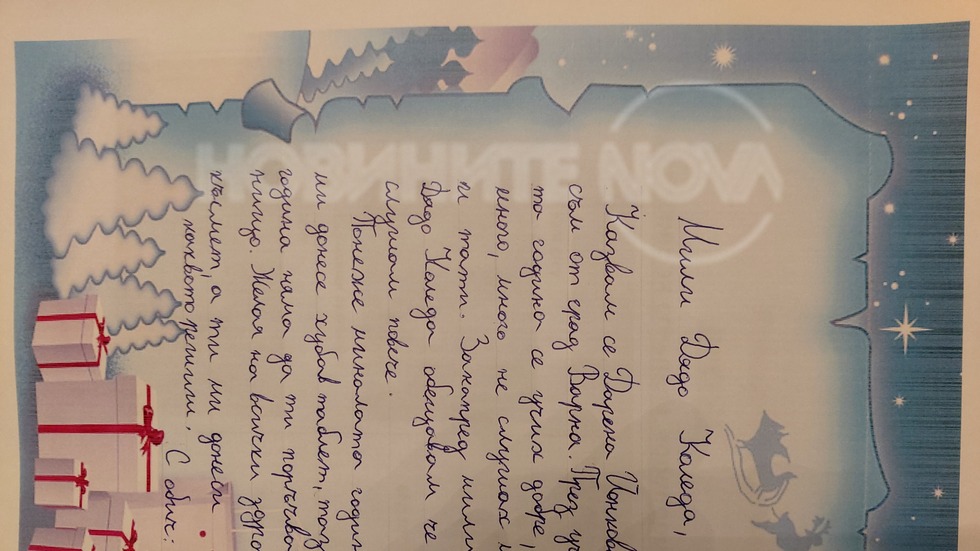 Мили Дядо Коледа,
Казвам се Дарена Йонков
съм от град Варна. През уч
та година се учих добре,
много, много не слушах м
и тати. Занапред мили
Дядо Коледа обещавам че
слушам повече.
Понеже миналата годин
ми донесе хубав таблет, таз
година няма да ти поръчва
нищо. Желая на всички здра
късмет, а ти ми донеси
каквото решиш.
С обич:
НОВИНИТЕ NOVA